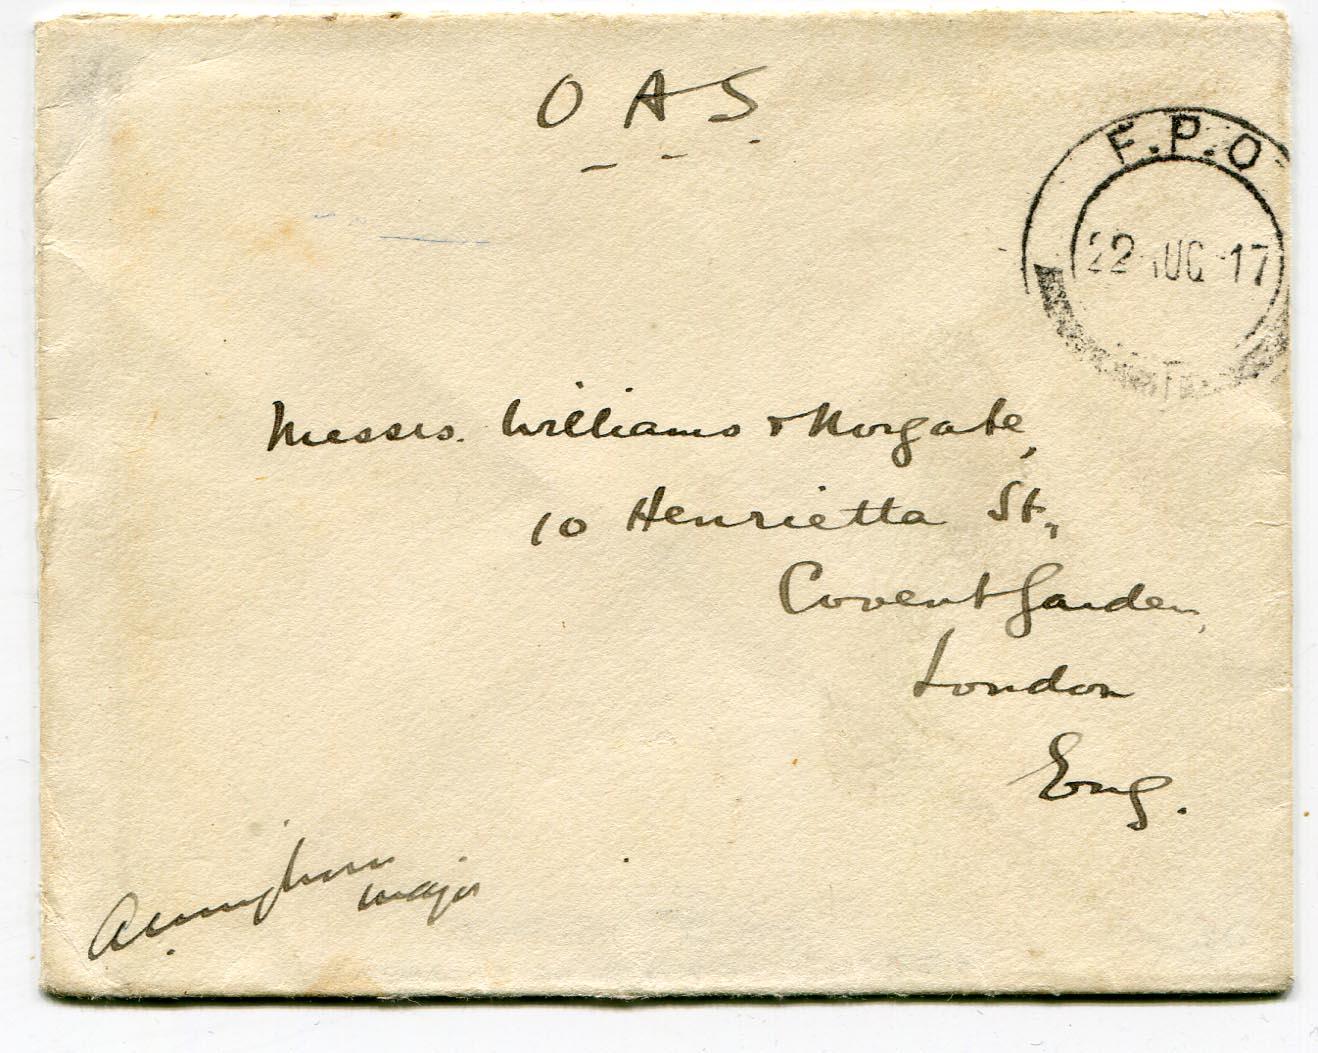 O A S
F.P.O
22 AUG 17
Messrs. Williams & Norgate,
10 Henrietta St.,
Covent Garden,
London
Eng.
major